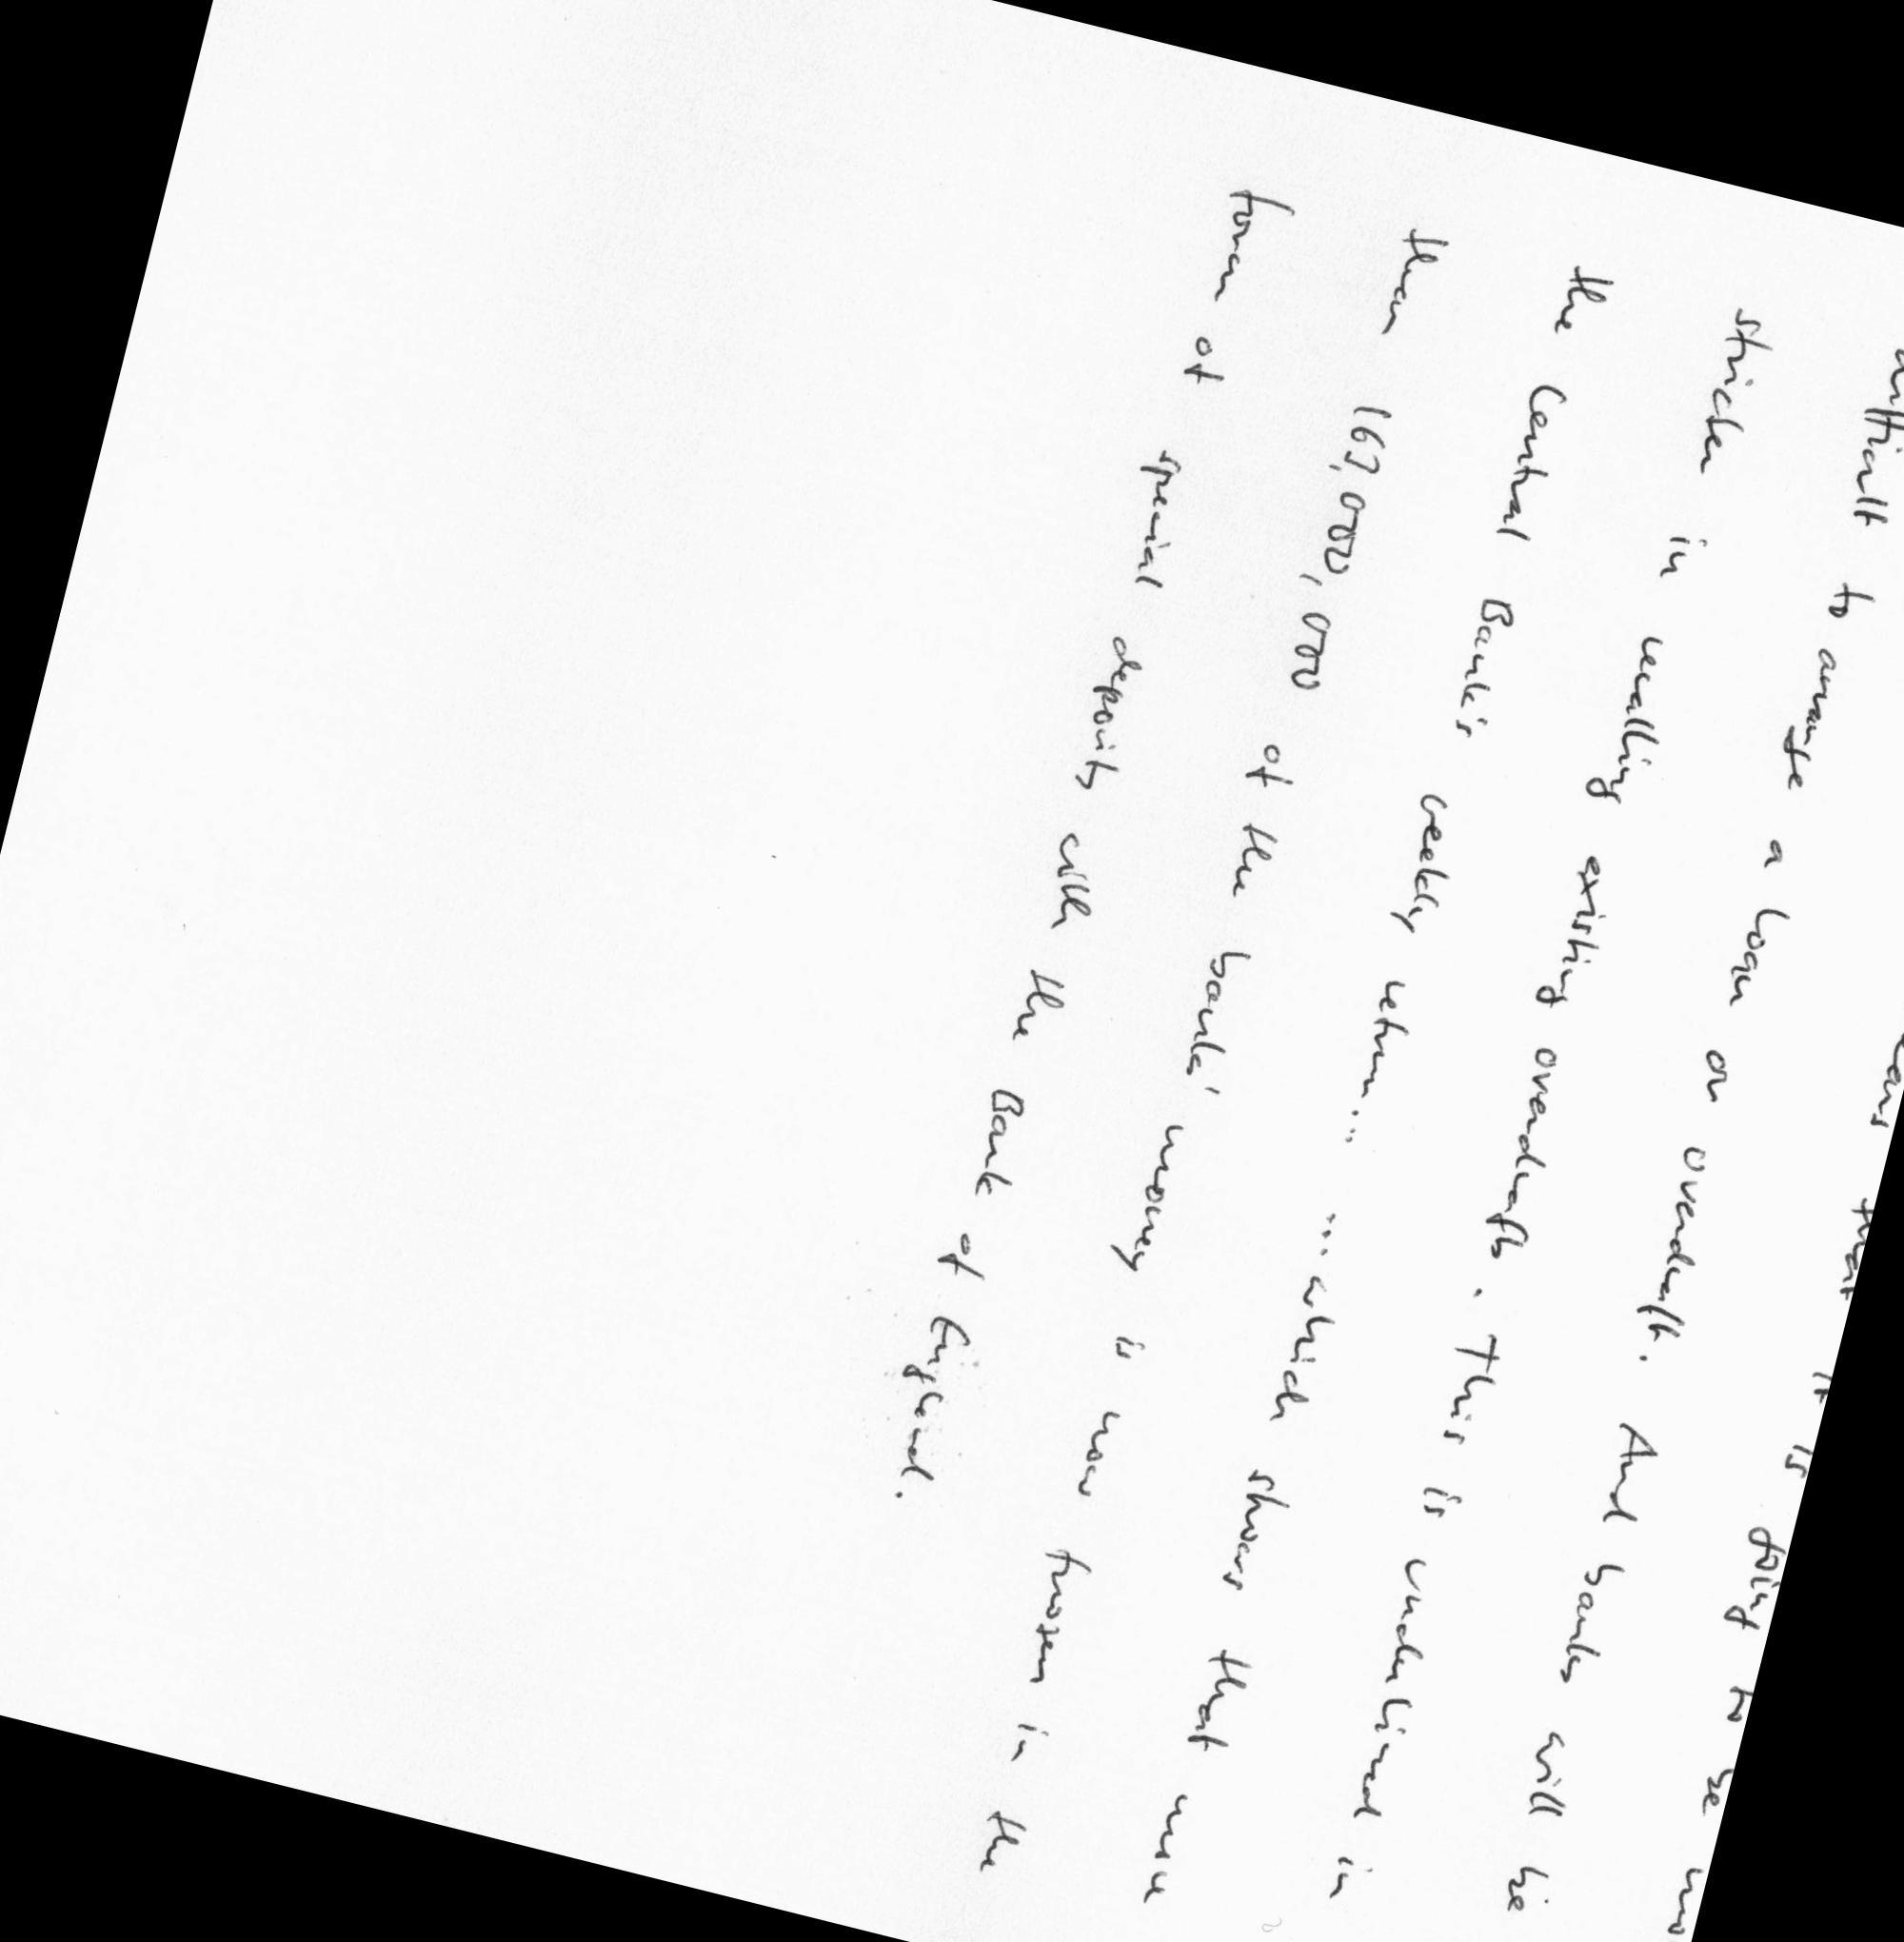 that it is going to be mo
difficult to arrange a loan or overdraft. And banks will be
stricter in recalling existing overdrafts. This is underlined in
the Central Bank's weekly return... ...which shows that more
than 167,000,000 of the banks' money is now frozen in the
form of special deposits with the Bank of England.